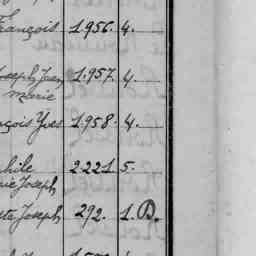 François 1.956. 4.
Joseph Jean 1.957. 4
Marie
nçois Yves 1.958. 4.
phile 2.221 5.
rie Joseph
te Joseph 292. 1.D.